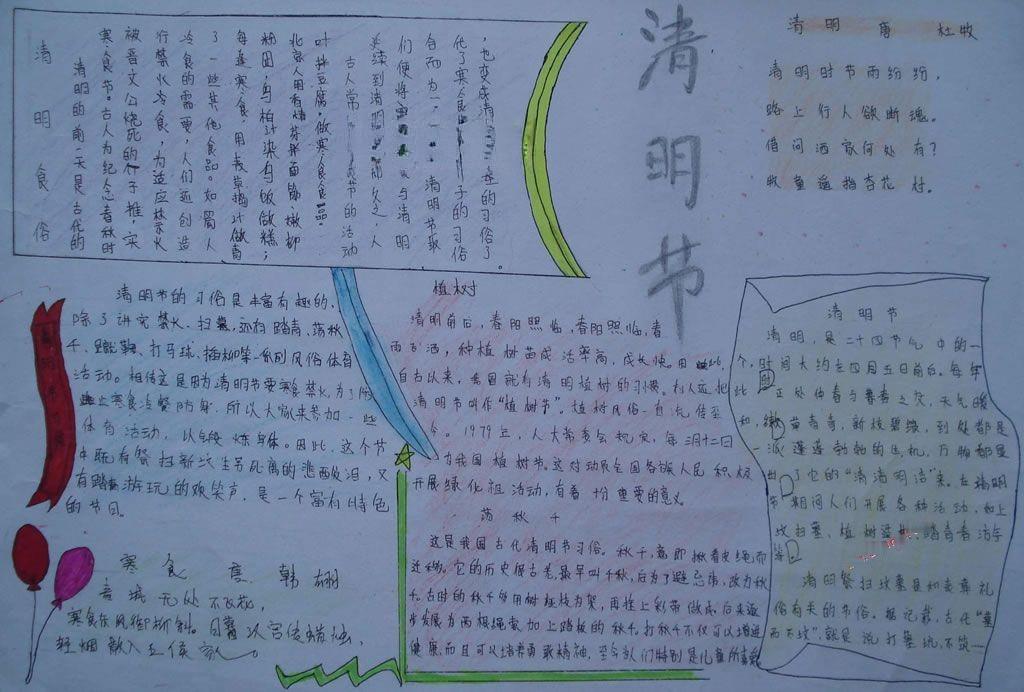 清明节
清明 唐 杜牧
清明时节雨纷纷,
路上行人欲断魂。
借问洒家何处有?
牧童遥指杏花村。
清明食俗
清明的前一天是古代的
寒食节。古人为纪念春秋时
被晋文公烧死的介子推,实
行禁火冷食,为适应禁火
冷食的需要,人们还创造
了一些其他食品。如蜀人
每逢寒食,用
粉团,乌桕汁染乌饭做糕;
叶拌豆腐,做寒食食品
古人常 节的活动
延续到清明 久之,人
们便将 与清明
合而为一。 清明节取
代了寒食 子的习俗
,也变成清 的习俗了。
清明节的习俗是丰富有趣的,
除了讲究禁火、扫墓,还有踏青、荡秋
千、蹴鞠、打马球、插柳等一系列风俗体育
活动。相传这是因为清明节要寒食禁火,为了防
止寒食冷餐防身,所以大家来参加一些
体育活动,以锻炼身体。因此,这个节
中既有祭扫新坟生离死别的悲酸泪,又
有踏青游玩的欢笑声,是一个富有特色
的节日。
寒食 唐 韩翃
春城无处不飞花,
寒食东风御柳斜。日暮汉宫传蜡烛,
轻烟散入五侯家。
植树
清明前后,春阳照临,春阳照临,春
雨飞洒,种植树苗成活率高,成长快。因此,
自古以来,我国就有清明植树的习惯。有人还把
清明节叫作“植树节”。植树风俗一直流传至
今。1979年,人大常委会规定,每三月十二日
为我国植树节。这对动员全国各族人民积极
开展绿化祖活动,有着十分重要的意义。
荡秋千
这是我国古代清明节习俗。秋千,意即揪着皮绳而
迁移。它的历史很古老,最早叫千秋,后为了避忌讳,改为秋
千。古时的秋千多用树桠枝为架,再栓上彩带做成。后来逐
步发展为两根绳索加上踏板的秋千。打秋千不仅可以增进
健康,而且可以培养勇敢精神,至今为人们特别是儿童所喜爱
清明节
清明,是二十四节气中的一
个,时间大约在四月五日前后。每年
此 正处仲春与暮春之交,天气暖
和,嫩苗青青,新枝碧绿,到处都是
派蓬蓬勃勃的生机,万物都显
出了它的“清清明洁”来。在清明
节期间人们开展各种活动,如上
坟扫墓、植树 、踏青春访
等
清明祭扫坟墓是和丧葬礼
俗有关的节俗。据记载,古代“墓
而不坟”,就是说打墓坑,不筑